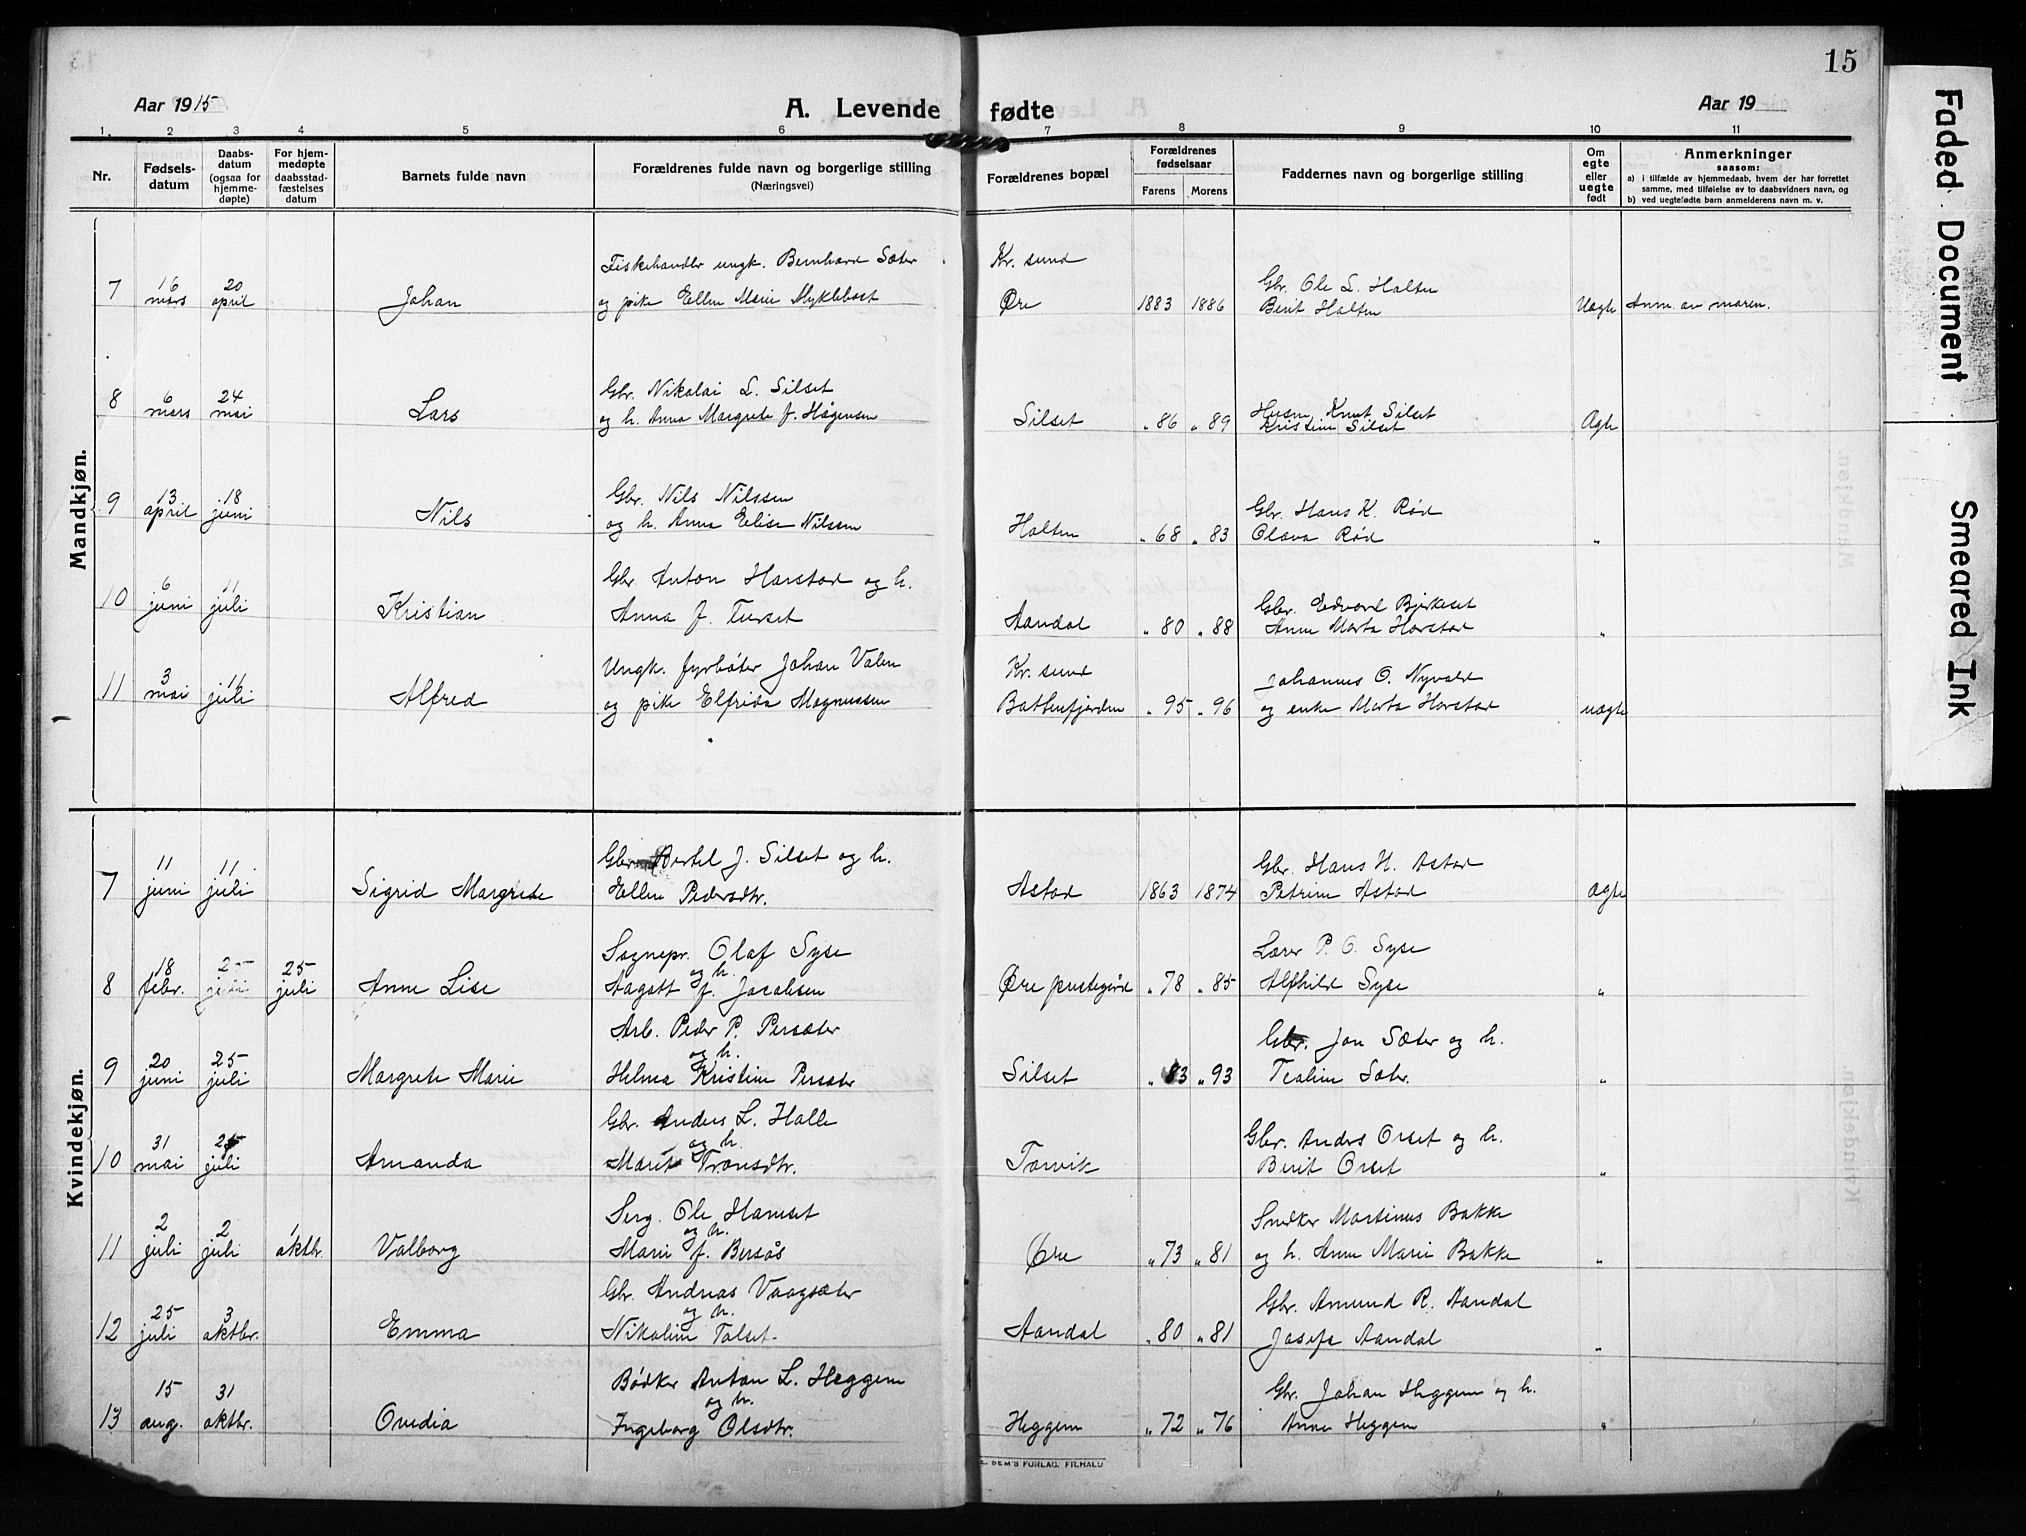 15
Aar 1915
A. Levende fødte
Aar 19
1. 2 3 4 5 6 7 8 9 10 11
Nr.
Fødsels-
datum
Daabs-
datum
(ogsaa for
hjemme-
døpte)
For hjem-
medøpte
daabsstad-
fæstelses
datum
Barnets fulde navn
Forældrenes fulde navn og borgerlige stilling
(Næringsvei)
Forældrenes bopæl
Forældrenes
fødselsaar
Farens Morens
Faddernes navn og borgerlige stilling
Om
egte
eller
uegte
født
Anmerkninger
saasom:
a) i tilfælde av hjemmedaab, hvem der har forrettet
samme, med tilføielse av to daabsvidners navn, og
b) ved uegtefødte barn anmelderens navn m. v.
Mandkjøn.
Fiskehandler ungk. Bernhard Sæter Kr. sund
7 16 mars 20 april Johan og pike Ellen Marie Myklebost Øre 1883 1886 Gbr. Ole L. Halten
Berit Halten Uægte Anm. av moren.
Gbr. Nikolai L. Silset
8 6 mars 24 mai Lars og h. Anna Margrete f. Høgensen Silset " 86 " 89 Husm. Knut Silset
Kristine Silset Ægte
Gbr. Nils Nilssen
9 13 april 18 juni Nils og h. Anna Elise Nilssen Halten " 68 " 83 Gbr. Hans K. Rød
Olava Rød "
Gbr. Anton Harstad og h.
10 6 juni 11 juli Kristian Anna f. Turset Aandal " 80 " 88 Gbr. Edvard Bjerkeset
Anne Marta Harstad "
Ungk. fyrbøter Johan Valen Kr. sund
11 3 mai 11 juli Alfred og pike Elfrida Magnussen Battenfjorden " 95 " 96 Johannes O. Nyvald
og enke Marta Harstad uægte
Kvindekjøn.
Gbr. Bertel J. Silset og h.
7 11 juni 11 juli Sigrid Margrete Ellen Pedersdtr. Astad 1863 1874 Gbr. Hans H. Astad
Petrine Astad ægte
Sognepr. Olaf Syse
og h.
8 18 febr. 25 juli 25 juli Anne Lise Aagott f. Jacobsen Øre prestegård " 78 " 85 Lærer P. O. Syse
Alfhild Syse "
Arb. Peder P. Persæter
og h.
9 20 juni 25 juli Margrete Marie Helma Kristine Persæter Silset " 83 " 93 Gbr. Jon Sæter og h.
Tealine Sæter. "
Gbr. Anders L. Halle
og h.
10 31 mai 25 juli Amanda Marit Tronsdtr. Torvik Gbr. Anders Orset og h.
Berit Orset "
Serg. Ole Hanset
og h.
11 2 juli 2 juli oktbr. Valborg Marie f. Bersås Øre " 73 " 81 Snedker Martinus Bakke
og h. Anne Marie Bakke "
Gbr. Andreas Vaagsæter
og h.
12 25 juli 3 oktbr. Emma Nikoline Talset Aandal " 80 " 81 Gbr. Amund R. Aandal
Josefa Aandal "
Bødker Anton L. Heggem
og h.
13 15 aug. 31 oktbr. Ovidia Ingeborg Olsdtr. Heggem " 72 " 76 Gbr. Johan Heggem og h.
Anne Heggem "
FORLAG. F.HALD
Faded Document
Smeared Ink